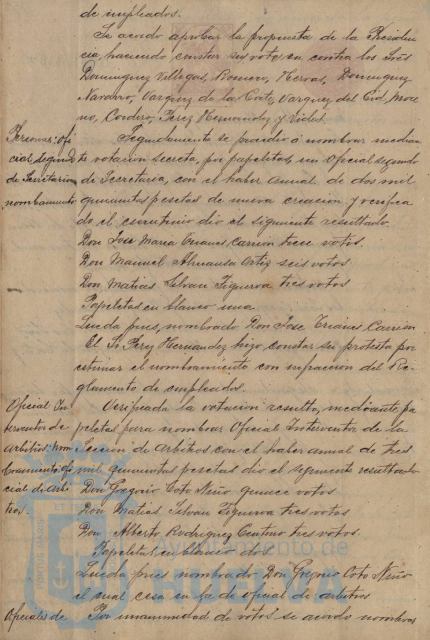 de empleados.
Se acordo aprobar la propuesta de la Presiden-
cia, haciendo constar sus votos en contra los Sres
Dominguez Villegas, Romero, Hervas, Dominguez
Navarro, Vazquez de la Corte, Vazquez del Cid, More-
no, Cordero, Perez Hernandez y Vides.
Personas: Ofi-
cial segundo
de Secretaria
nombramiento
Seguidamente se procedio á nombrar median-
te votacion secreta, por papeletas, un Oficial segundo
de Secretaria, con el haber anual de dos mil
quinientas pesetas de nueva creacion y verifica-
do el escrutinio dio el siguiente resultado
Don Jose Maria Carrion trece votos.
Don Manuel Almansa Ortiz seis votos
Don Matias Selvan Figueroa tres votos
Papeletas en blanco una
Queda pues, nombrado Don Jose Carrion
El Sr. Perez Hernandez hizo constar su protesta por
estimar el nombramiento con infraccion del Re-
glamento de empleados.
Oficial In-
terventor de
Arbitrios: nom-
bramiento: Ofi-
cial de Arbi-
trios.
Verificada la votacion resulto, mediante pa-
peletas para nombrar Oficial Interventor de la
Seccion de Arbitrios con el haber anual de tres
mil quinientas pesetas dio el siguiente resultado
Don Gregorio Coto Niño quince votos
Don Matias Selvan Figueroa tres votos
Don Alberto Rodriguez Centeno tres votos.
Papeletas en blanco dos
Queda pues nombrado Don Gregorio Coto Niño
el cual cesa en la de oficial de arbitrios
Oficiales de
Por unanimidad de votos se acordo nombrar
Ayuntamiento de
HUELVA